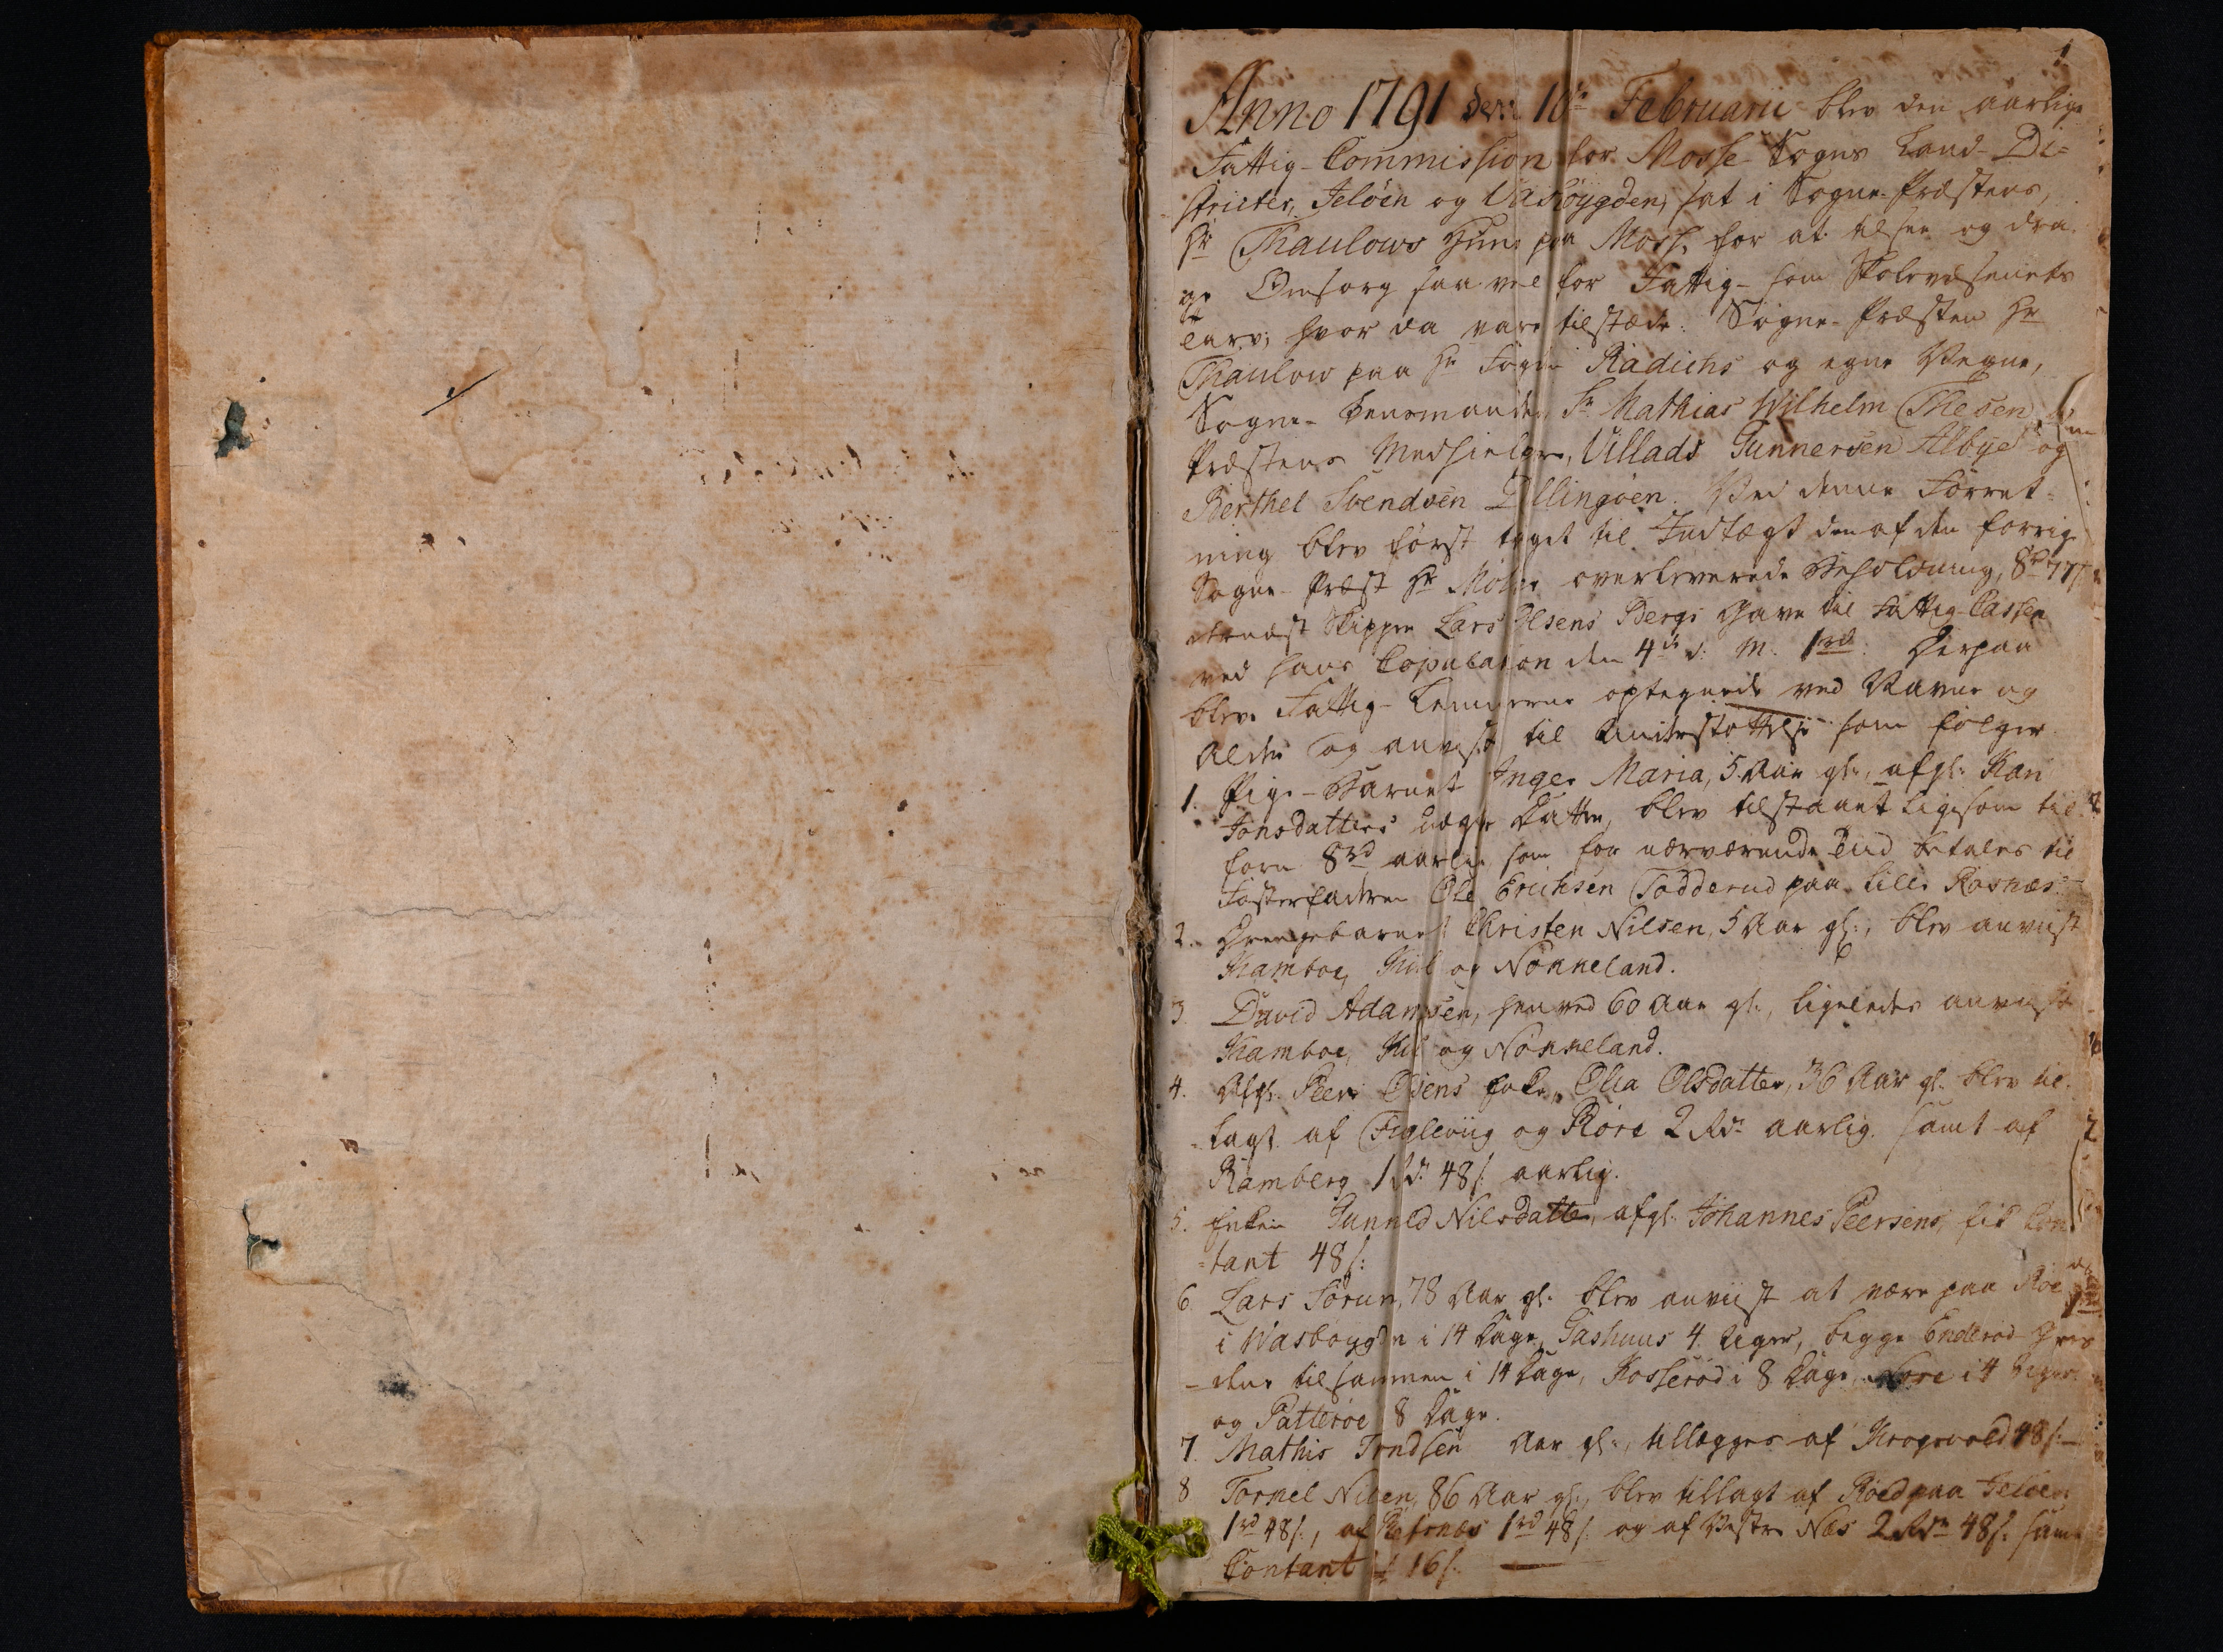 1
Anno 1791 den 10de Februarii blev den aarlige
Fattig-Commission for Mosse-Sogns Land-Di=
stricter, Jeløen og Vaasbøygden, sat i Sogne-Præstens,
Hr Thaulows Huus paa Moss, for at tilsee og dra=
ge Omsorg saa vel for Fattig- som Skolevæsenets
Tarv; hvor da vare tilstæde: Sogne-Præsten Hr
Thaulow paa Hr Foged Radichs og egne Vegne,
Sogne-Lensmanden Sr Mathias Wilhelm Thesen,
Præstens Medhielpere, Ullads Gunnersen Albye og
Berthel Svendsen Dillingøen. Ved denne Forret=
ning blev først taget til Indtægt den af den forrige
Sogne-Præst Hr Møller overleverede Beholdning, 8rd 77s
dernæst Skipper Lars Olsens Bergs Gave til Fattig-Cassen
ved hans Copulation den 4de d: M. 1rd. Herpaa
bleve Fattig-Lemmerne optegnede ved Navne og
Alder og anviiste til Understøttelse som følger
1. Pige-Barnet Inger Maria, 5 Aar gl:, afgl: Kari
Jonsdatters uægte Datter, blev tilstaaet ligesom til=
forn 8rd aarlig som for nærværende Tiid betales til
Fosterfaderen Ole Erichsen Todderud paa lille Rosnæs.
2. Drengebarnet Christen Nilsen, 5 Aar gl:, blev anviist
Kamboe, Kiil og Nøkkeland.
3. David Adamsen, henved 60 Aar gl:, ligeledes anviist
Kamboe, Kiil og Nøkkeland.
4. Afgl: Peer Olsens Enke, Olia Olsdatter, 36 Aar gl: blev til=
lagt af Fugleviig og Røre 2 Rdr aarlig samt af
Ramberg 1 Rdr 48s: aarlig.
5. Enken Gunnild Nilsdatter, afgl: Johannes Peersens, fik Con=
tant 48s:
6. Lars Torun, 78 Aar gl: blev anviist at være paa Roe
i Wasbøygden i 14 Dage, Gashuus 4 Uger, begge Enderød-Gaar=
dene tilsammen i 14 Dage, Kosserød i 8 Dage, Nore i 4 Uger
og Patterøe 8 Dage.
7. Mathis Trndsen Aar gl:, tillægges af Krogsvold 48s:
8. Tormel Nilsen, 86 Aar gl:, blev tillagt af Røed paa Jeløen
1rd 48s:, af Refsnæs 1rd 48s: og af Vestre Næs 2 Rdr 48s: samt
Contant 16s: